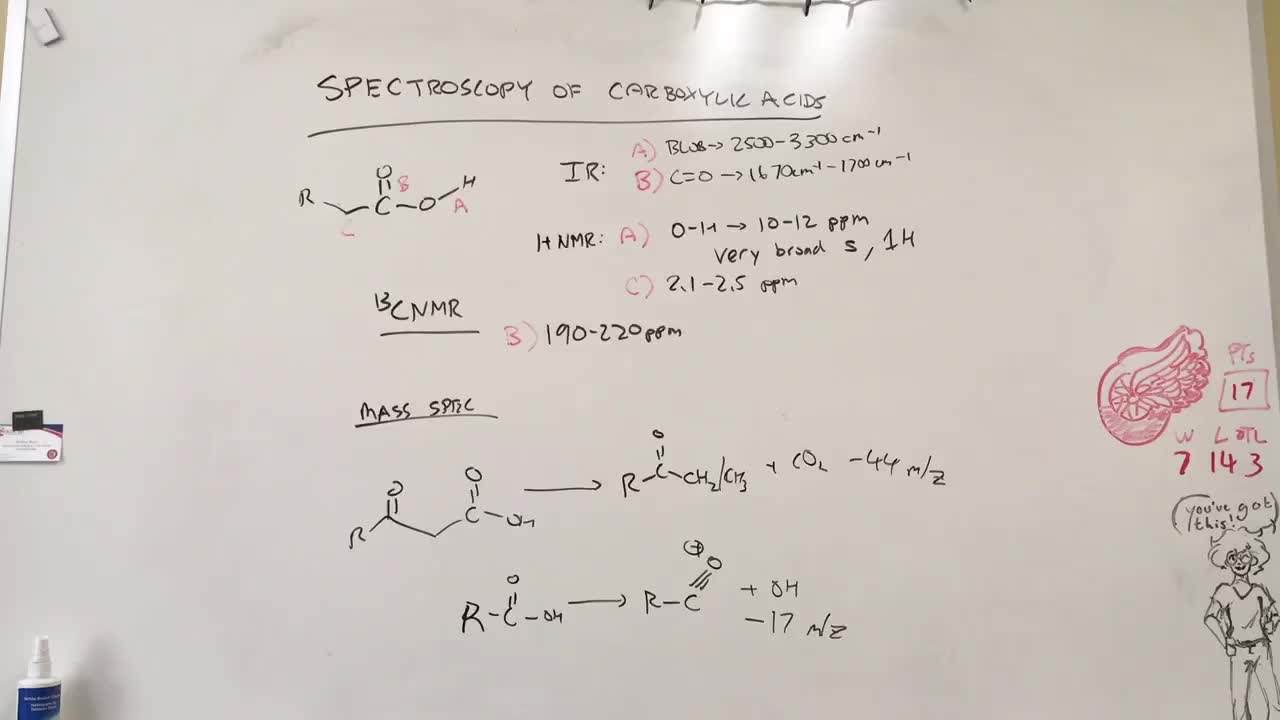 SPECTROSCOPY OF CARBOXYLIC ACIDS
IR: A) BLOB → 2500-3300 cm⁻¹
B) C=O → 1670cm⁻¹-1700cm⁻¹
O
R C O H
B
A
C
H NMR: A) O-H → 10-12 ppm
very broad s, 1H
C) 2.1-2.5 ppm
¹³CNMR
B) 190-220ppm
MASS SPEC
O O
R C-OH → R C CH₂/CH₃ + CO₂ -44 m/z
O
R-C-OH → R-C≡O + OH
O
⊕
-17 m/z
PTs
17
W L OTL
7 14 3
you've got
this!